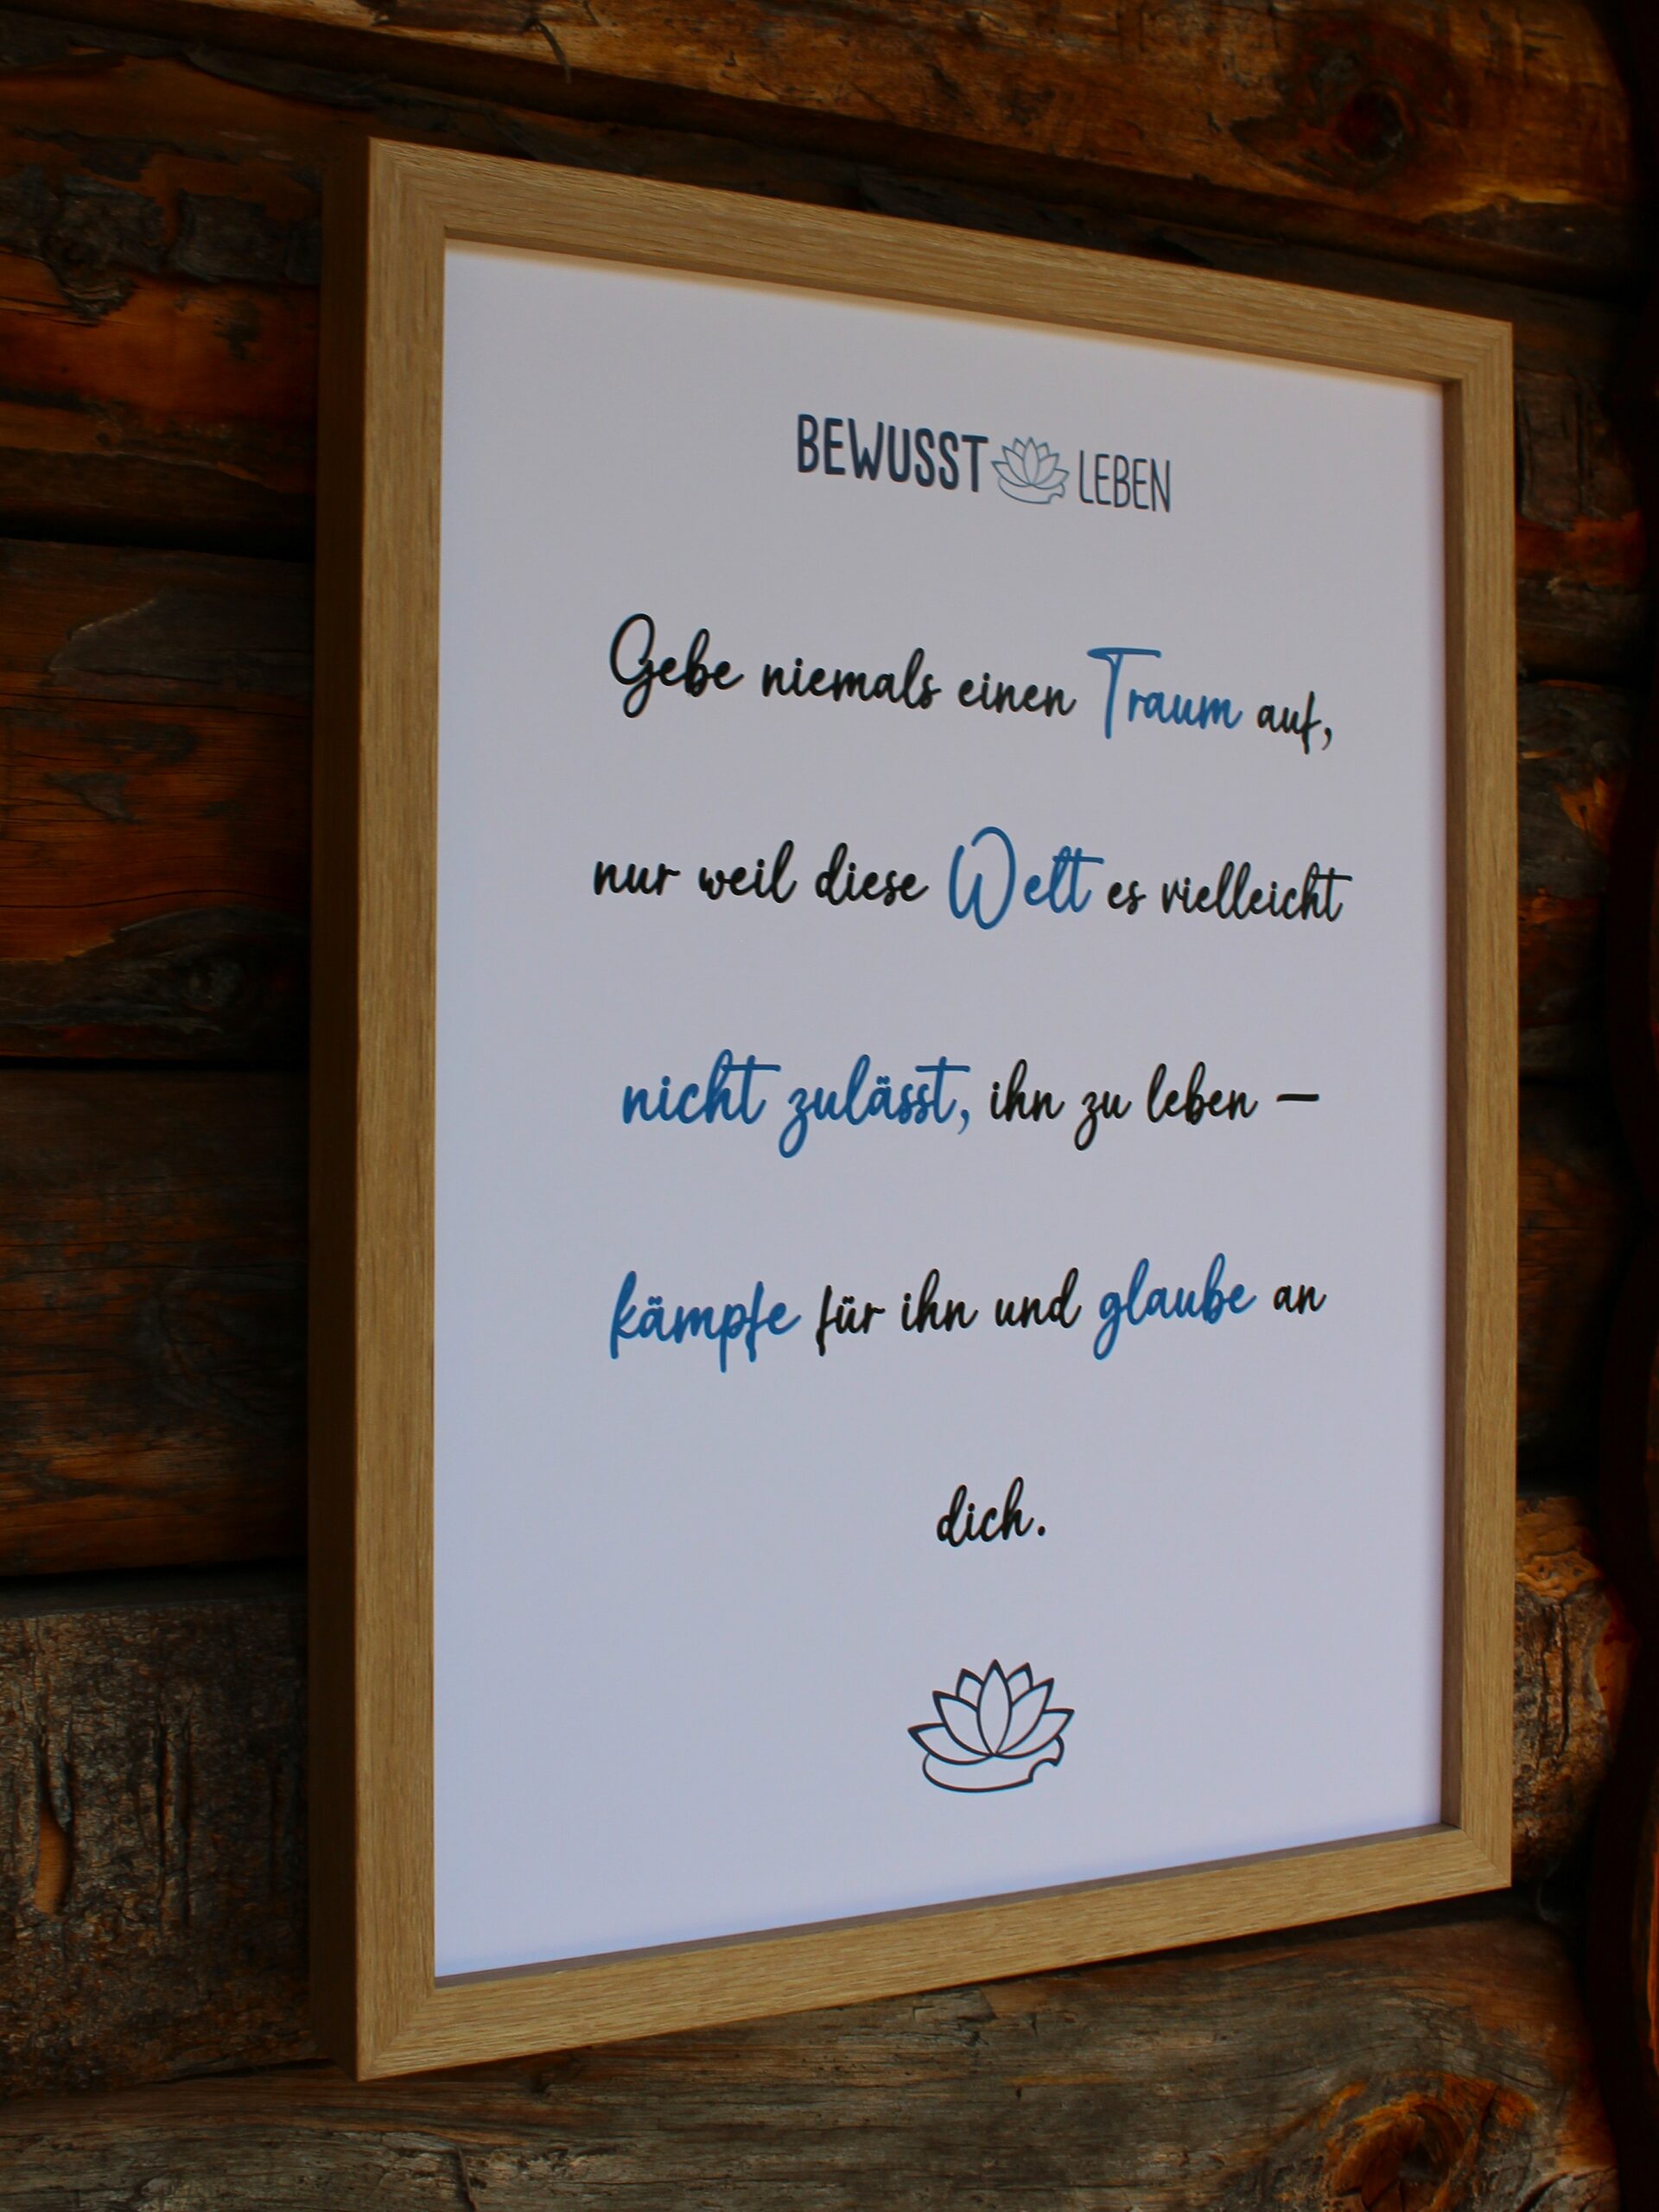 BEWUSST LEBEN
Gebe niemals einen Traum auf,
nur weil diese Welt es vielleicht
nicht zulässt, ihn zu leben –
kämpfe für ihn und glaube an
dich.